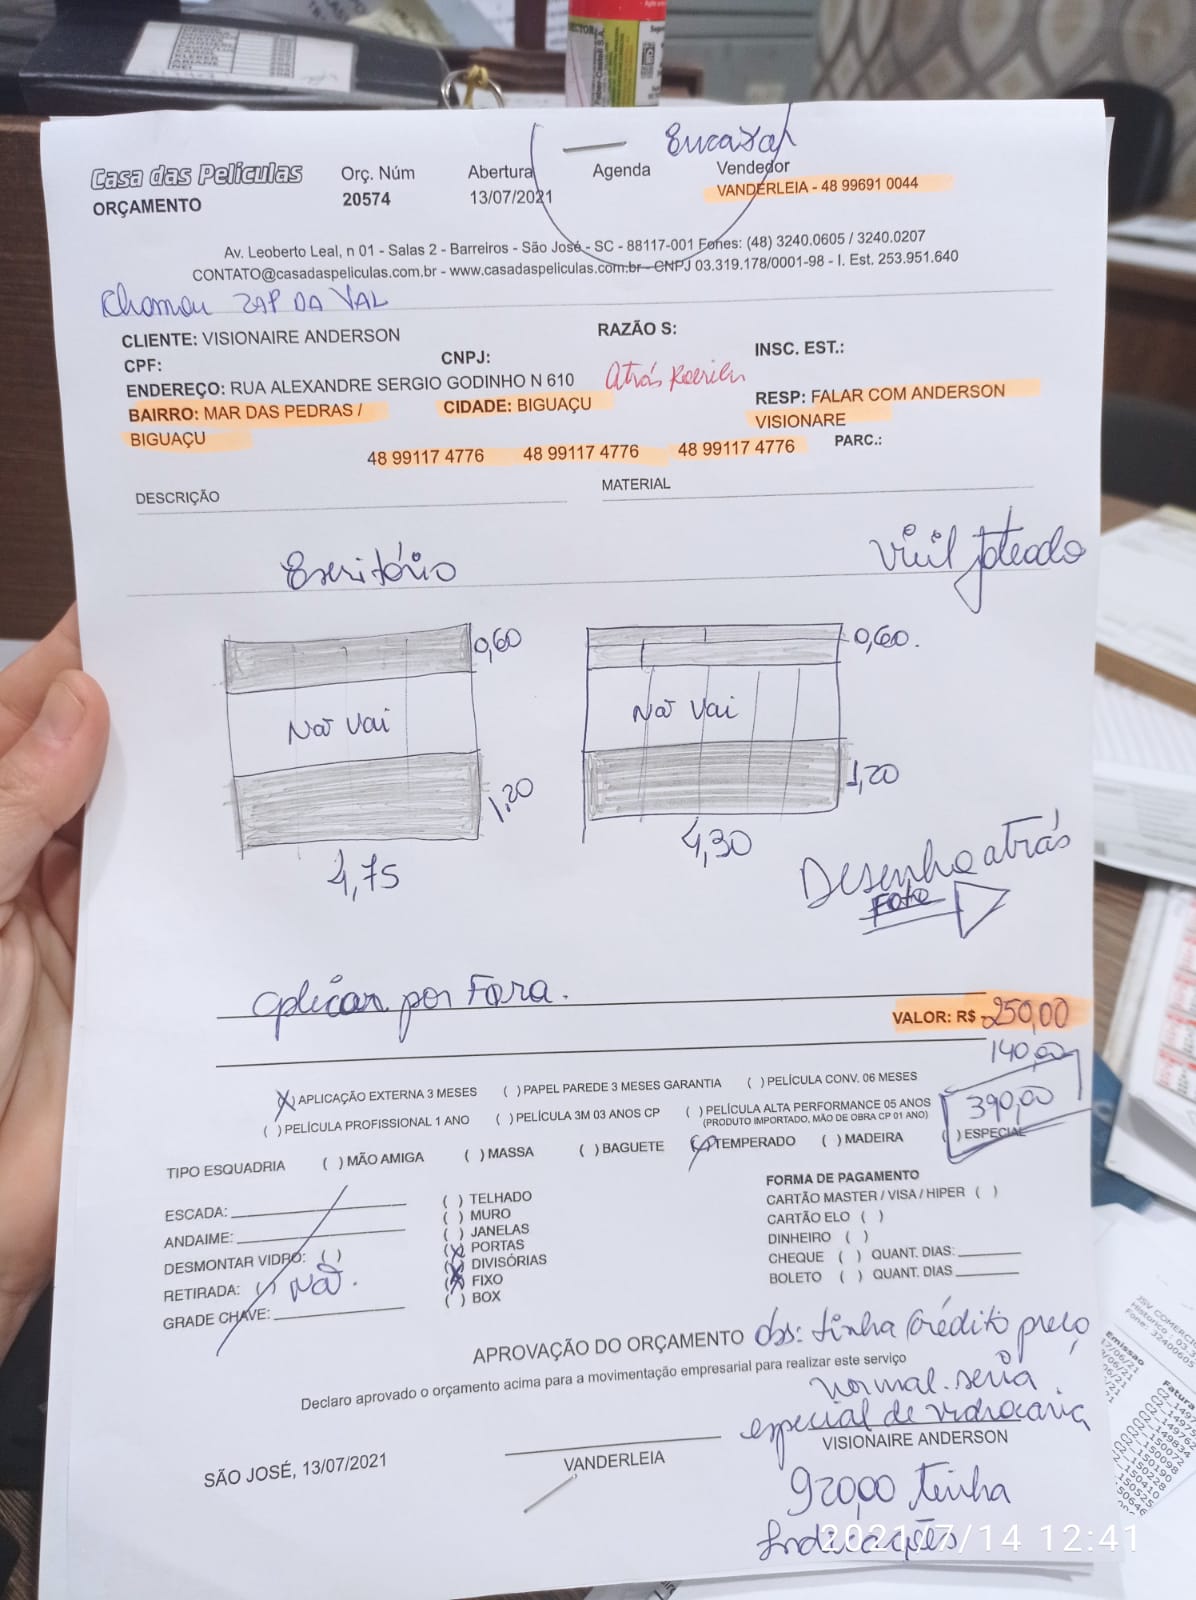 Encaxar
Casa das Películas
Orç. Núm
Abertura
Agenda
Vendedor
ORÇAMENTO
20574
13/07/2021
VANDERLEIA - 48 99691 0044
Av. Leoberto Leal, n 01 - Salas 2 - Barreiros - São José - SC - 88117-001 Fones: (48) 3240.0605 / 3240.0207
CONTATO@casadaspeliculas.com.br - www.casadaspeliculas.com.br - CNPJ 03.319.178/0001-98 - I. Est. 253.951.640
Chamou ZAP DA VAL
CLIENTE: VISIONAIRE ANDERSON
RAZÃO S:
CPF:
CNPJ:
INSC. EST.:
ENDEREÇO: RUA ALEXANDRE SERGIO GODINHO N 610
Atrás
BAIRRO: MAR DAS PEDRAS /
BIGUAÇU
CIDADE: BIGUAÇU
RESP: FALAR COM ANDERSON
VISIONARE
48 99117 4776 48 99117 4776 48 99117 4776
PARC.:
DESCRIÇÃO
MATERIAL
Escritório
Vinil jateado
0,60
0,60.
Não Vai
Não Vai
1,20
1,20
4,75
4,30
Desenho atrás
Foto
aplicar por Fora.
VALOR: R$ 250,00
140,00
390,00
(X) APLICAÇÃO EXTERNA 3 MESES ( ) PAPEL PAREDE 3 MESES GARANTIA ( ) PELÍCULA CONV. 06 MESES
( ) PELÍCULA PROFISSIONAL 1 ANO ( ) PELÍCULA 3M 03 ANOS CP ( ) PELÍCULA ALTA PERFORMANCE 05 ANOS
(PRODUTO IMPORTADO, MÃO DE OBRA CP 01 ANO)
( ) ESPECIAL
TIPO ESQUADRIA ( ) MÃO AMIGA ( ) MASSA ( ) BAGUETE (X) TEMPERADO ( ) MADEIRA
ESCADA:
ANDAIME:
DESMONTAR VIDRO: ( )
RETIRADA: ( ) Não.
GRADE CHAVE:
( ) TELHADO
( ) MURO
( ) JANELAS
(X) PORTAS
(X) DIVISÓRIAS
(X) FIXO
( ) BOX
FORMA DE PAGAMENTO
CARTÃO MASTER / VISA / HIPER ( )
CARTÃO ELO ( )
DINHEIRO ( )
CHEQUE ( ) QUANT. DIAS:
BOLETO ( ) QUANT. DIAS
APROVAÇÃO DO ORÇAMENTO
Declaro aprovado o orçamento acima para a movimentação empresarial para realizar este serviço
obs: tinha Crédito preço
normal seria
especial de vidraçaria
920,00 tinha
Indicações
SÃO JOSÉ, 13/07/2021
VANDERLEIA
VISIONAIRE ANDERSON
2021/7/14 12:41